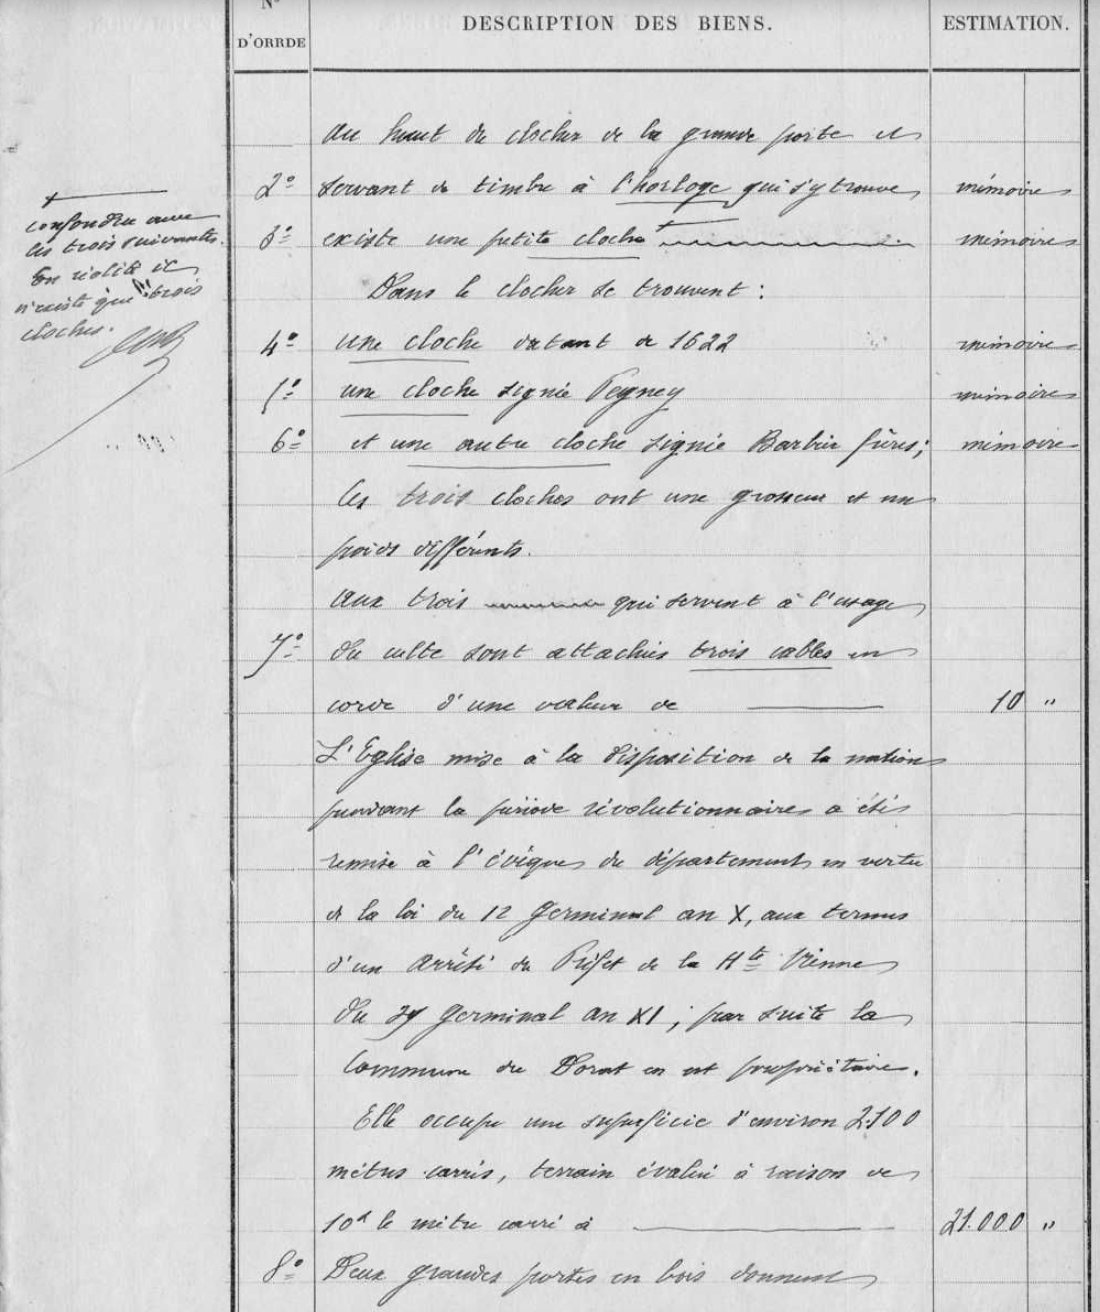 N°
D'ORRDE
DESCRIPTION DES BIENS.
ESTIMATION.
au haut du clocher de la grande porte et
2° servant de timbre à l'horloge qui s'y trouve mémoire
3° existe une petite cloche + mémoire
+
confondue avec
les trois suivantes.
En réalité il
n'existe que trois
cloches.
Dans le clocher se trouvent :
4° une cloche datant de 1622 mémoire
5° une cloche signée Peigney mémoire
6° et une autre cloche signée Barbier frères; mémoire
les trois cloches ont une grosseur et un
poids différents.
Aux trois qui servent à l'usage
7° du culte sont attachés trois cables en
corde d'une valeur de 10 "
L'Eglise mise à la disposition de la nation
pendant la période révolutionnaire a été
remise à l'évêque du département en vertu
de la loi du 12 Germinal an X, aux termes
d'un arrêté du Préfet de la Hte Vienne
du germinal an XI ; par suite la
Commune du Dorat en est propriétaire.
Elle occupe une superficie d'environ 2.100
mètres carrés, terrain évalué à raison de
10f le mètre carré à 21.000 "
8° Deux grandes portes en bois donnent